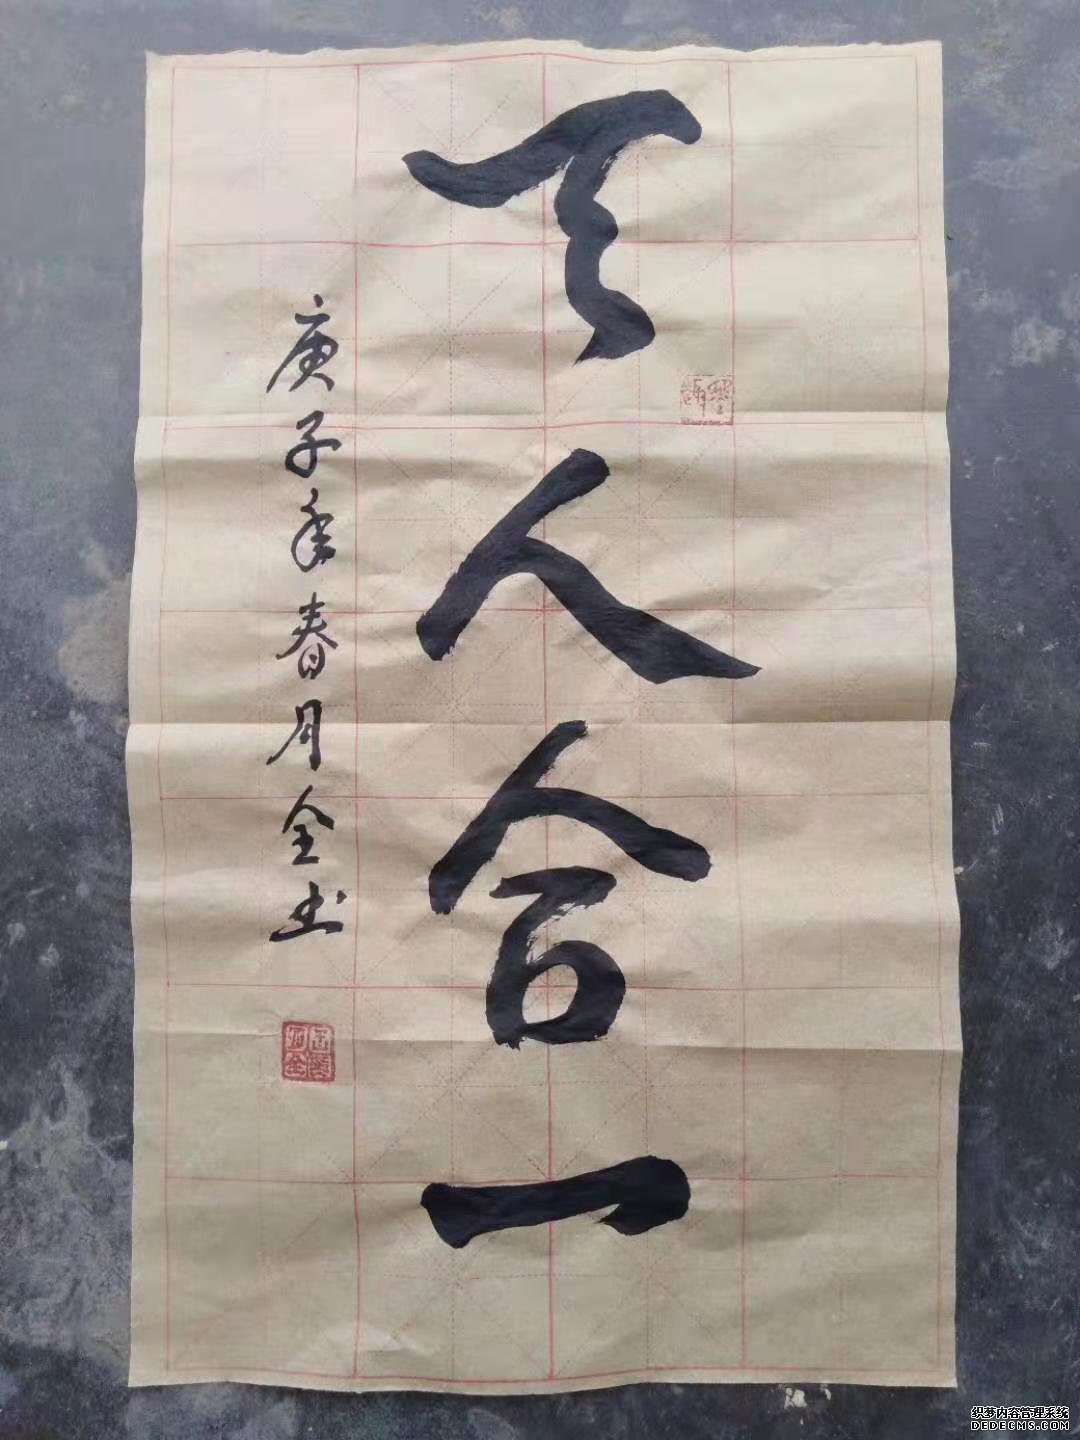 天人合一
庚子年春月全书
织梦内容管理系统
DEDECMS.COM